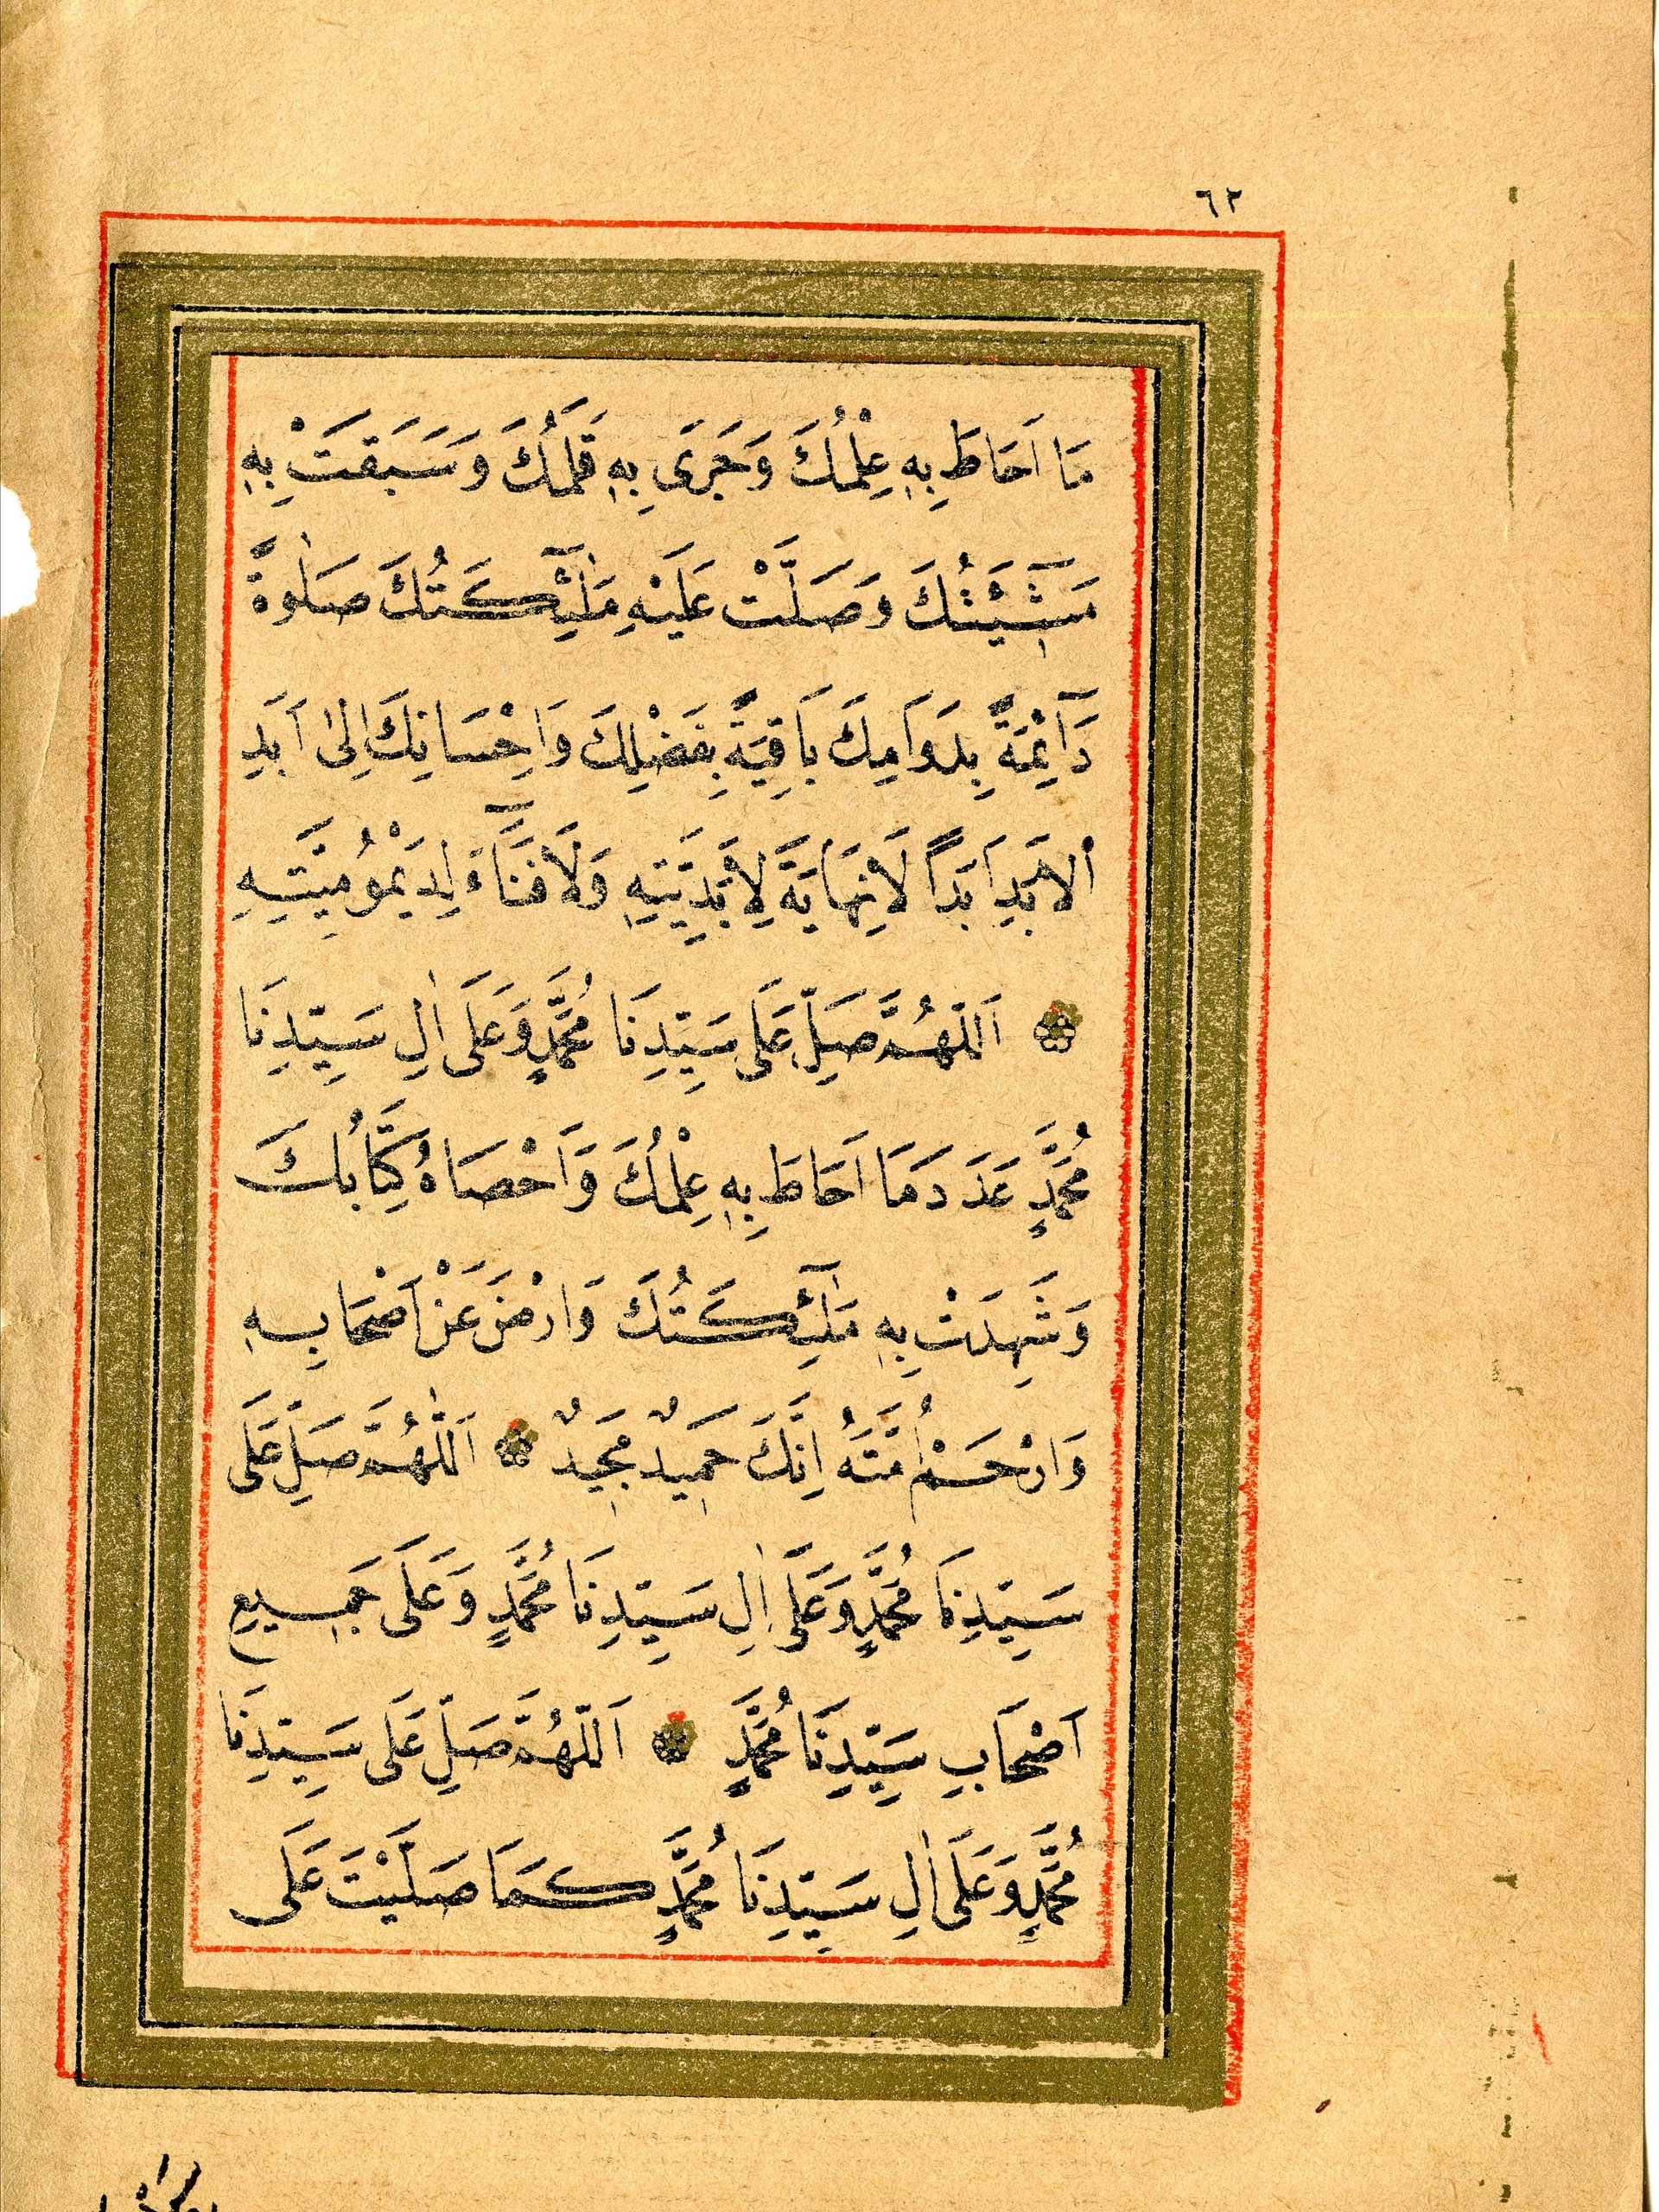 ٦٢
مَا اَحَاطَ بِهِ عِلْمُكَ وَجَرَى بِهِ قَلَمُكَ وَسَبَقَتْ بِهِ
مَشِيْئَتُكَ وَصَلَّتْ عَلَيْهِ مَلٰٓئِكَتُكَ صَلٰوةً
دَآئِمَةً بِدَوَامِكَ بَاقِيَةً بِفَضْلِكَ وَاِحْسَانِكَ اِلٰى اَبَدِ
الْاَبَدِ اَبَدًا لَانِهَايَةَ لِاَبَدِيَّتِهِ وَلَافَنَآءَ لِدَيْمُومِيَّتِهِ
اَللّٰهُمَّ صَلِّ عَلَى سَيِّدِنَا مُحَمَّدٍ وَعَلَى اٰلِ سَيِّدِنَا
مُحَمَّدٍ عَدَدَ مَا اَحَاطَ بِهِ عِلْمُكَ وَاَحْصَاهُ كِتَابُكَ
وَشَهِدَتْ بِهِ مَلٰٓئِكَتُكَ وَارْضَ عَنْ اَصْحَابِهِ
وَارْحَمْ اُمَّتَهُ اِنَّكَ حَمِيدٌ مَجِيدٌ اَللّٰهُمَّ صَلِّ عَلَى
سَيِّدِنَا مُحَمَّدٍ وَعَلَى اٰلِ سَيِّدِنَا مُحَمَّدٍ وَعَلَى جَمِيعِ
اَصْحَابِ سَيِّدِنَا مُحَمَّدٍ اَللّٰهُمَّ صَلِّ عَلَى سَيِّدِنَا
مُحَمَّدٍ وَعَلَى اٰلِ سَيِّدِنَا مُحَمَّدٍ كَمَا صَلَّيْتَ عَلَى